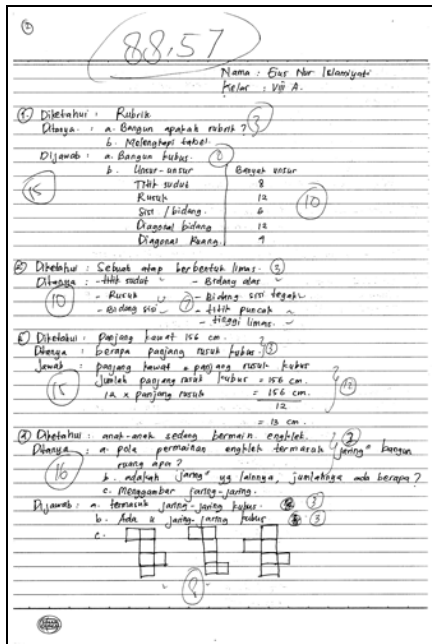 88,57
Nama : Eius Nur Islamiyati
Kelas : VIII A.
1. Diketahui : Rubrik
Ditanya : a. Bangun apakah rubrik ? 3
b. Melengkapi tabel.
Dijawab : a. Bangun kubus.
b. Unsur-unsur Banyak unsur
15 Titik sudut 8
Rusuk 12
Sisi / bidang. 6 10
Diagonal bidang 12
Diagonal Ruang. 4
2) Diketahui : Sebuah atap berbentuk limas. 3
Ditanya : - titik sudut - Bidang alas
10 - Rusuk 7 - Bidang sisi tegak
- Bidang sisi - titik puncak
- tinggi limas.
Diketahui : panjang kawat 156 cm.
Ditanya : berapa panjang rusuk kubus. 3
Jawab : panjang kawat = panjang rusuk kubus
15 Jumlah panjang rusuk kubus = 156 cm.
12 x panjang rusuk = 156 cm. 12
12
= 13 cm.
Diketahui : anak-anak sedang bermain engklek.
Ditanya : a. pola permainan engklek termasuk jaring" bangun
ruang apa ?
16 b. adakah jaring" yg lainnya, jumlahnya ada berapa ?
c. Menggambar jaring-jaring.
Dijawab : a. termasuk jaring-jaring kubus. 3
b. Ada 11 jaring-jaring kubus 3
c.
8